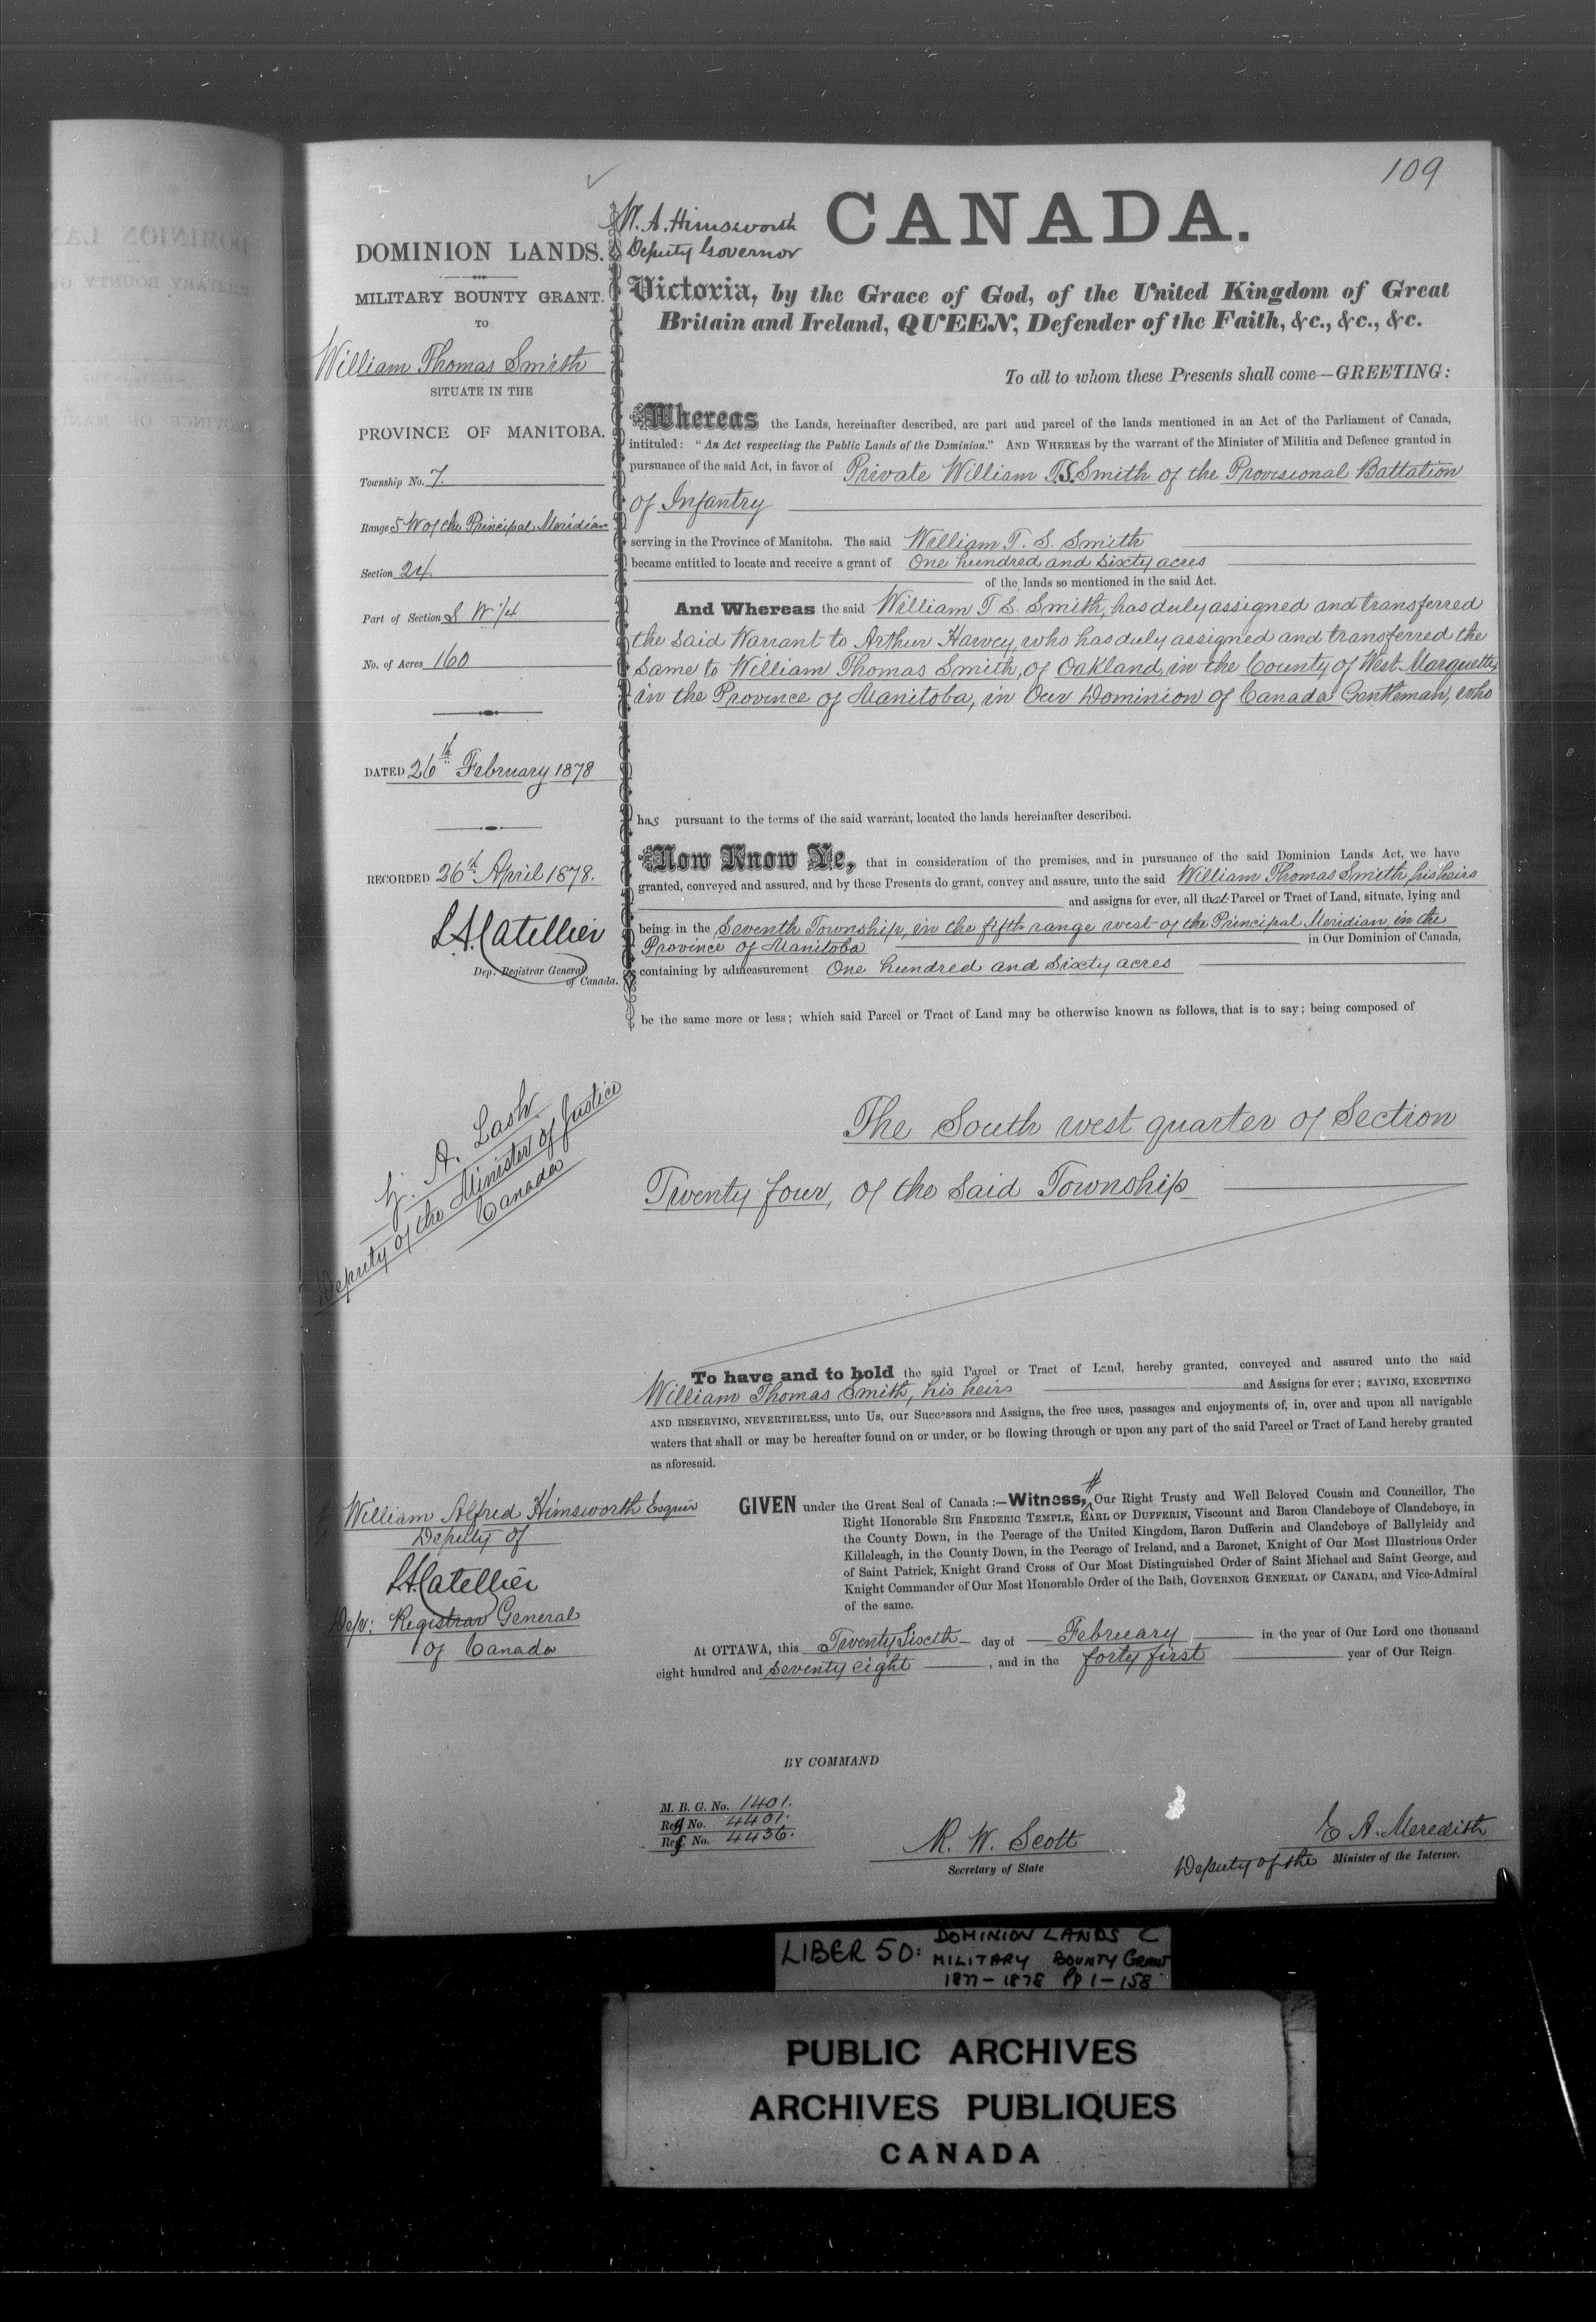 109
W. A. Himsworth
Deputy Governor
CANADA.
DOMINION LANDS.
MILITARY BOUNTY GRANT.
TO
William Thomas Smith
SITUATE IN THE
PROVINCE OF MANITOBA.
Township No. 7.
Range 5 W of the Principal Meridian
Section 24
Part of Section S W 1/4
No. of Acres 160
DATED 26th February 1878
RECORDED 26th April 1878.
L A Catellier
Dep. Registrar General
of Canada.
Z. A. Lash
Deputy of the Minister of Justice
Canada
Victoria, by the Grace of God, of the United Kingdom of Great
Britain and Ireland, QUEEN, Defender of the Faith, &c., &c., &c.
To all to whom these Presents shall come—GREETING:
Whereas the Lands, hereinafter described, are part and parcel of the lands mentioned in an Act of the Parliament of Canada,
intituled: "An Act respecting the Public Lands of the Dominion." AND WHEREAS by the warrant of the Minister of Militia and Defence granted in
pursuance of the said Act, in favor of Private William T.S. Smith of the Provisional Battalion
of Infantry
serving in the Province of Manitoba. The said William T. S. Smith
became entitled to locate and receive a grant of One hundred and Sixty acres
of the lands so mentioned in the said Act.
And Whereas the said William T S. Smith, has duly assigned and transferred
the said Warrant to Arthur Harvey, who has duly assigned and transferred the
same to William Thomas Smith, of Oakland, in the County of West Marquette
in the Province of Manitoba, in Our Dominion of Canada Gentleman, who
has pursuant to the terms of the said warrant, located the lands hereinafter described.
Now Know Ye, that in consideration of the premises, and in pursuance of the said Dominion Lands Act, we have
granted, conveyed and assured, and by these Presents do grant, convey and assure, unto the said William Thomas Smith, his heirs
and assigns for ever, all that Parcel or Tract of Land, situate, lying and
being in the Seventh Township, in the fifth range west of the Principal Meridian, in the
Province of Manitoba in Our Dominion of Canada,
containing by admeasurement One hundred and Sixty acres
be the same more or less; which said Parcel or Tract of Land may be otherwise known as follows, that is to say; being composed of
The South west quarter of Section
Twenty four, of the said Township
To have and to hold the said Parcel or Tract of Land, hereby granted, conveyed and assured unto the said
William Thomas Smith, his heirs and Assigns for ever; SAVING, EXCEPTING
AND RESERVING, NEVERTHELESS, unto Us, our Successors and Assigns, the free uses, passages and enjoyments of, in, over and upon all navigable
waters that shall or may be hereafter found on or under, or be flowing through or upon any part of the said Parcel or Tract of Land hereby granted
as aforesaid.
William Alfred Himsworth Esquire
Deputy of
L A Catellier
Dep: Registrar General
of Canada
GIVEN under the Great Seal of Canada:—Witness, # Our Right Trusty and Well Beloved Cousin and Councillor, The
Right Honorable SIR FREDERIC TEMPLE, EARL OF DUFFERIN, Viscount and Baron Clandeboye of Clandeboye, in
the County Down, in the Peerage of the United Kingdom, Baron Dufferin and Clandeboye of Ballyleidy and
Killeleagh, in the County Down, in the Peerage of Ireland, and a Baronet, Knight of Our Most Illustrious Order
of Saint Patrick, Knight Grand Cross of Our Most Distinguished Order of Saint Michael and Saint George, and
Knight Commander of Our Most Honorable Order of the Bath, GOVERNOR GENERAL OF CANADA, and Vice-Admiral
of the same.
At OTTAWA, this Twenty Sixth day of February in the year of Our Lord one thousand
eight hundred and seventy eight, and in the forty first year of Our Reign.
BY COMMAND
M. B. G. No. 1401.
Ref No. 4401.
Ref. No. 4436.
R. W. Scott
Secretary of State
E A. Meredith
Deputy of the Minister of the Interior.
LIBER 50: DOMINION LANDS C
MILITARY BOUNTY GRANT
1877-1878 Pp 1-158
PUBLIC ARCHIVES
ARCHIVES PUBLIQUES
CANADA